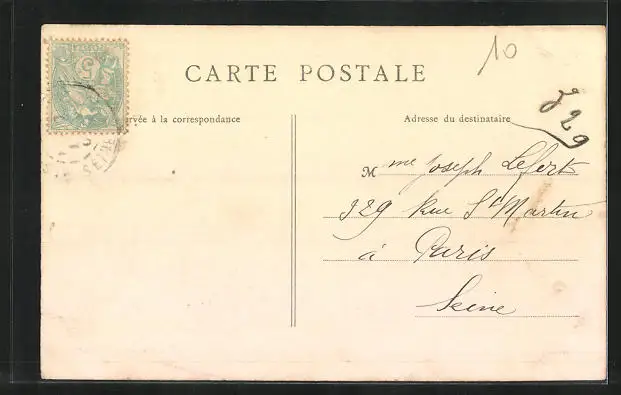 10
CARTE POSTALE
rvée à la correspondance
Adresse du destinataire
Mme Joseph Lefort
329 Rue St Martin
à Paris
Seine